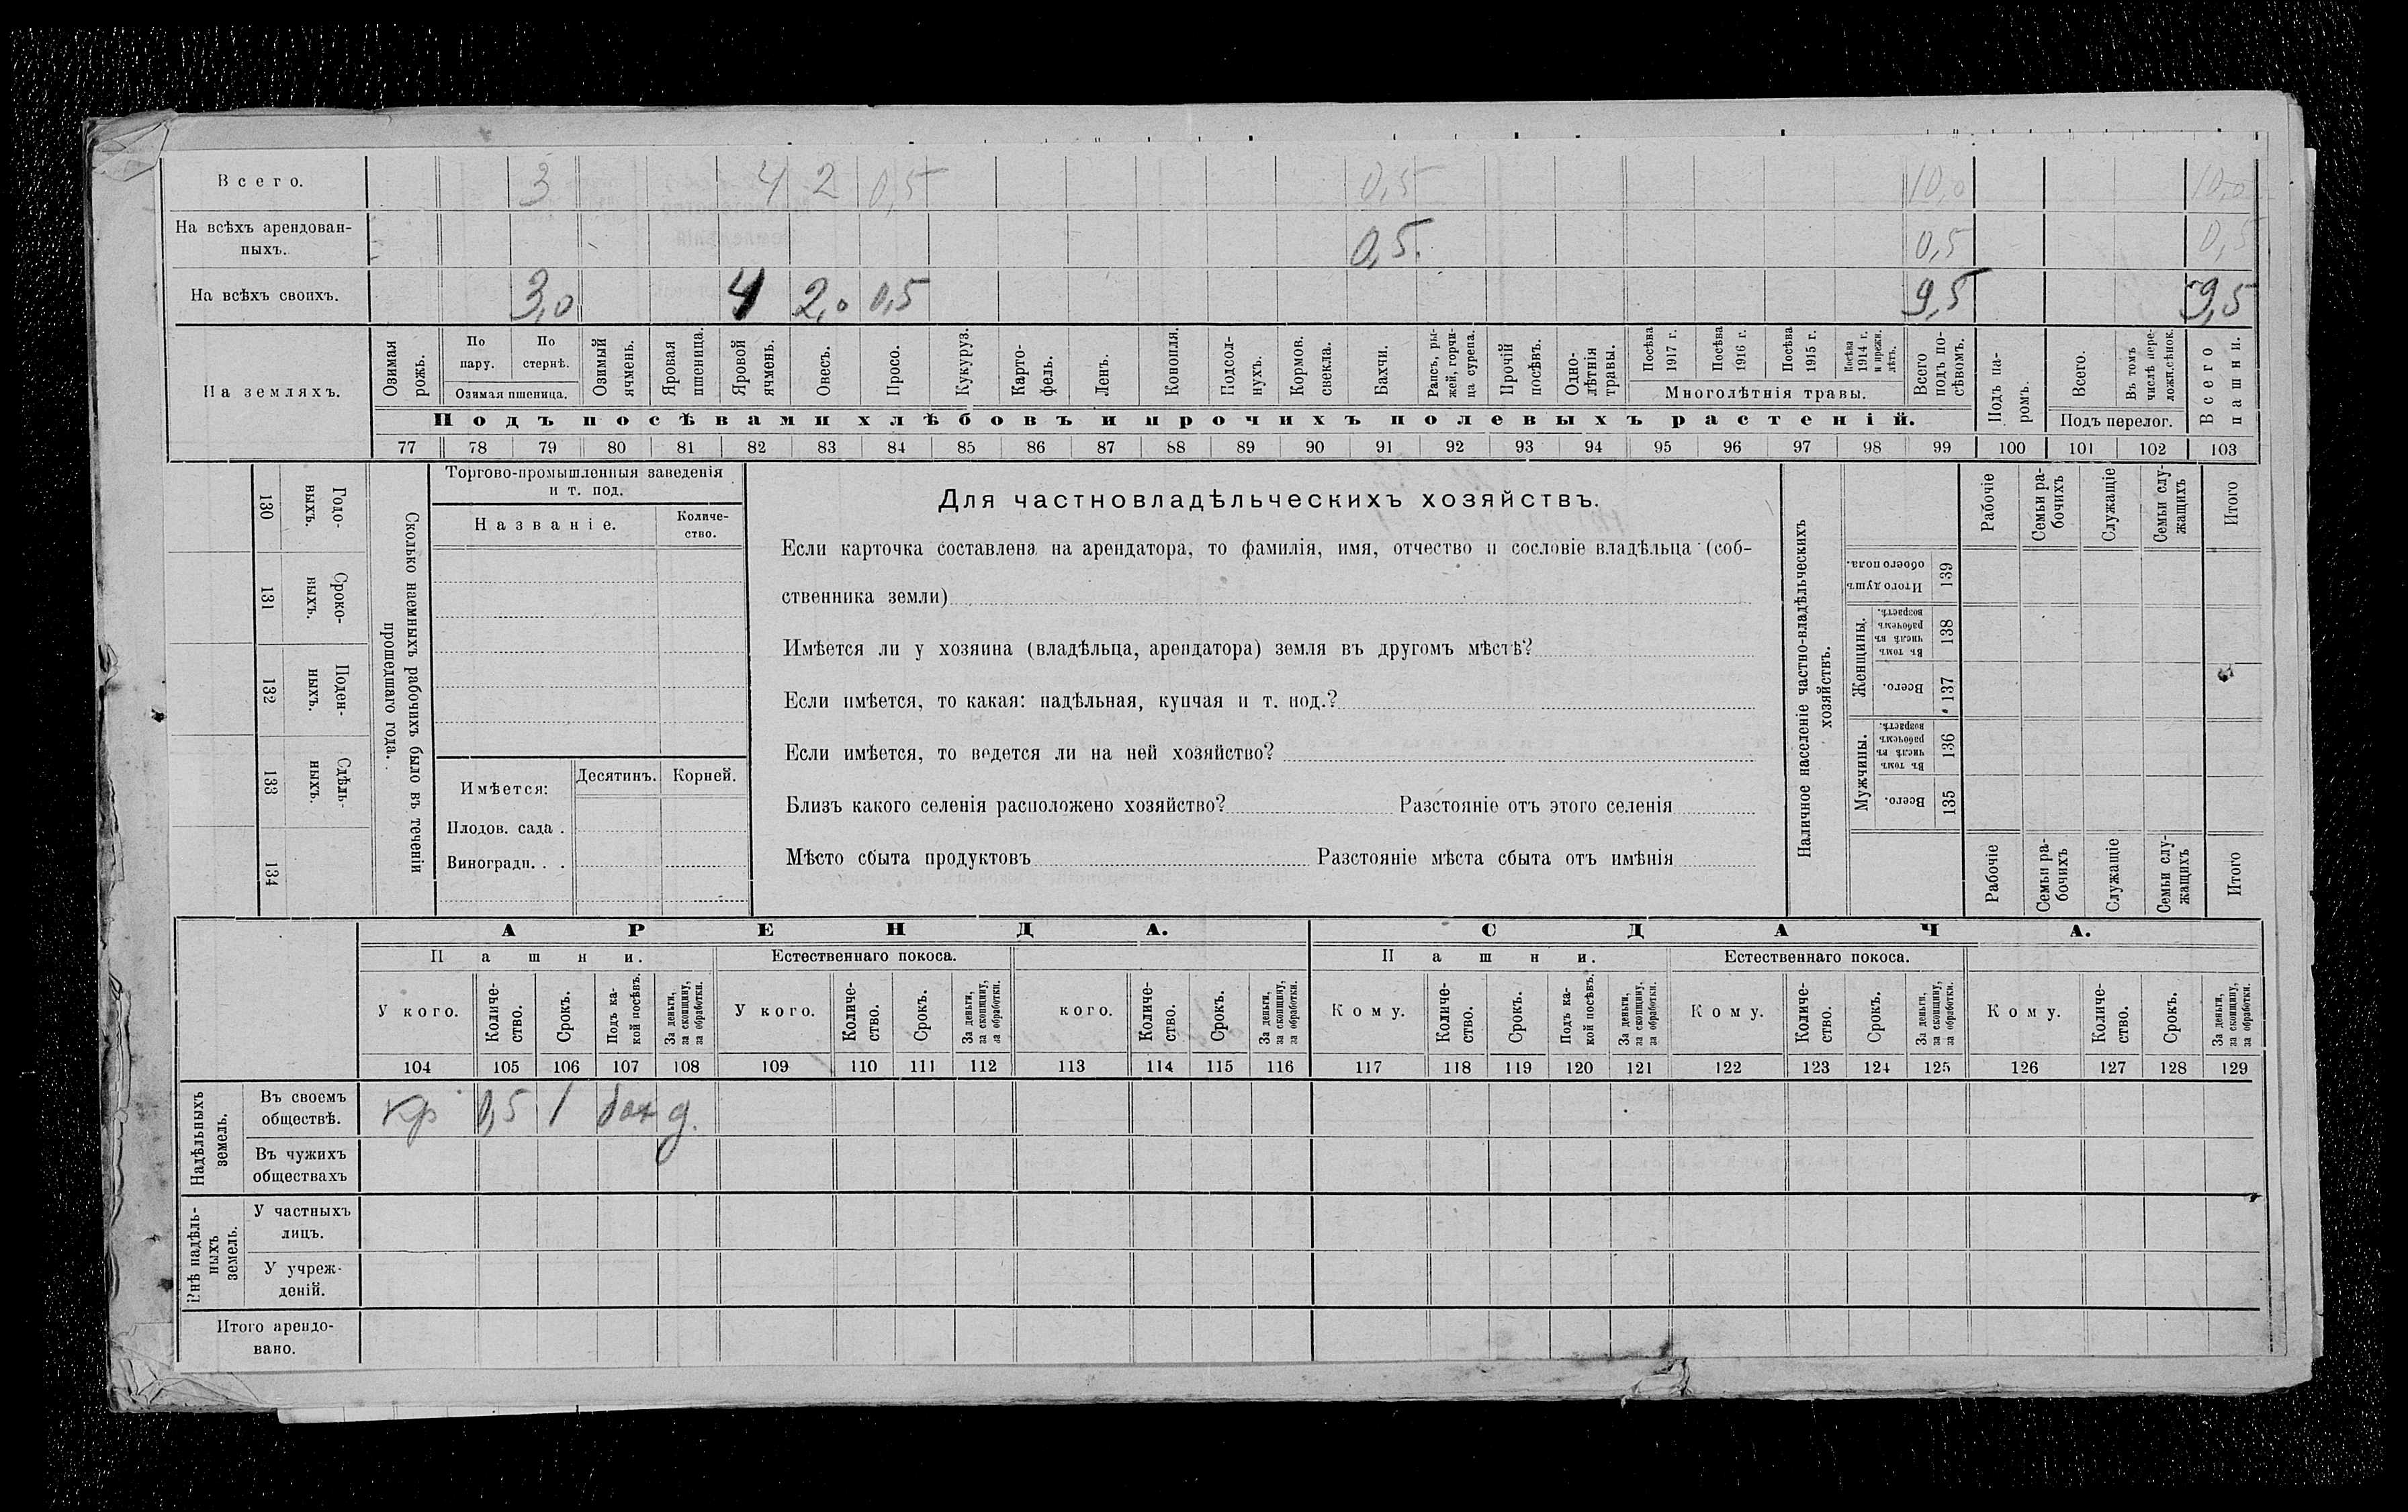 Всего. 3 4 2 0,5 0,5 10,0 10,0
На всѣхъ арендован-
ныхъ. 0,5. 0,5 0,5
На всѣхъ своихъ. 3,0 4 2,0 0,5 9,5 9,5
На земляхъ.
Озимая рожь.
По пару.
По стернѣ.
Озимая пшеница.
Озимый ячмень.
Яровая пшеница.
Яровой ячмень.
Овесъ.
Просо.
Кукуруз.
Карто-
фель.
Ленъ.
Конопля.
Подсол-
нухъ.
Кормов. свекла.
Бахчи.
Рапсъ, ры-
жей, горчи-
ца сурепа.
Прочій посѣвъ.
Одно-
лѣтнія травы.
Посѣва 1917 г.
Посѣва 1916 г.
Посѣва 1915 г.
Посѣва 1914 г. и прежн. лѣтъ.
Многолѣтнія травы.
Всего подъ по-
сѣвомъ.
Подъ па-
ромъ.
Всего.
Въ томъ числѣ пере-
ложн. сѣнок.
Подъ перелог.
Всего пашни.
Подъ посѣвами хлѣбовъ и прочихъ полевыхъ растеній.
77 78 79 80 81 82 83 84 85 86 87 88 89 90 91 92 93 94 95 96 97 98 99 100 101 102 103
130 Годо-
выхъ.
131 Сроко-
выхъ.
132 Поден-
ныхъ.
133 Сдѣль-
ныхъ.
134
Сколько наемныхъ рабочихъ было въ теченіи
прошедшаго года.
Торгово-промышленныя заведенія
и т. под.
Названіе.
Количе-
ство.
Имѣется:
Десятинъ. Корней.
Плодов. сада .
Виноградн. . .
Для частновладѣльческихъ хозяйствъ.
Если карточка составлена на арендатора, то фамилія, имя, отчество и сословіе владѣльца (соб-
ственника земли)
Имѣется ли у хозяина (владѣльца, арендатора) земля въ другомъ мѣстѣ?
Если имѣется, то какая: надѣльная, купчая и т. под.?
Если имѣется, то ведется ли на ней хозяйство?
Близъ какого селенія расположено хозяйство? Разстояніе отъ этого селенія
Мѣсто сбыта продуктовъ Разстояніе мѣста сбыта отъ имѣнія
Наличное населеніе частно-владѣльческихъ
хозяйствъ.
Рабочіе
Семьи ра-
бочихъ
Служащіе
Семьи слу-
жащихъ
Итого
Итого душъ обоего пола. 139
Женщины.
Въ томъ числѣ въ рабочемъ возрастѣ. 138
Всего. 137
Мужчины.
Въ томъ числѣ въ рабочемъ возрастѣ. 136
Всего. 135
Рабочіе
Семьи ра-
бочихъ
Служащіе
Семьи слу-
жащихъ
Итого
АРЕНДА. СДАЧА.
Пашни. Естественнаго покоса. Пашни. Естественнаго покоса.
У кого.
Количе-
ство.
Срокъ.
Подъ ка-
кой посѣвъ.
За деньги,
за скопщину,
за обработки.
У кого.
Количе-
ство.
Срокъ.
За деньги,
за скопщину,
за обработки.
кого.
Количе-
ство.
Срокъ.
За деньги,
за скопщину,
за обработки.
Кому.
Количе-
ство.
Срокъ.
Подъ ка-
кой посѣвъ.
За деньги,
за скопщину,
за обработки.
Кому.
Количе-
ство.
Срокъ.
За деньги,
за скопщину,
за обработки.
Кому.
Количе-
ство.
Срокъ.
За деньги,
за скопщину,
за обработки.
104 105 106 107 108 109 110 111 112 113 114 115 116 117 118 119 120 121 122 123 124 125 126 127 128 129
Надѣльныхъ
земель.
Въ своемъ
обществѣ.
кр 0,5 1 бах д.
Въ чужихъ
обществахъ
Внѣ надѣль-
ныхъ
земель.
У частныхъ
лицъ.
У учреж-
деній.
Итого арендо-
вано.